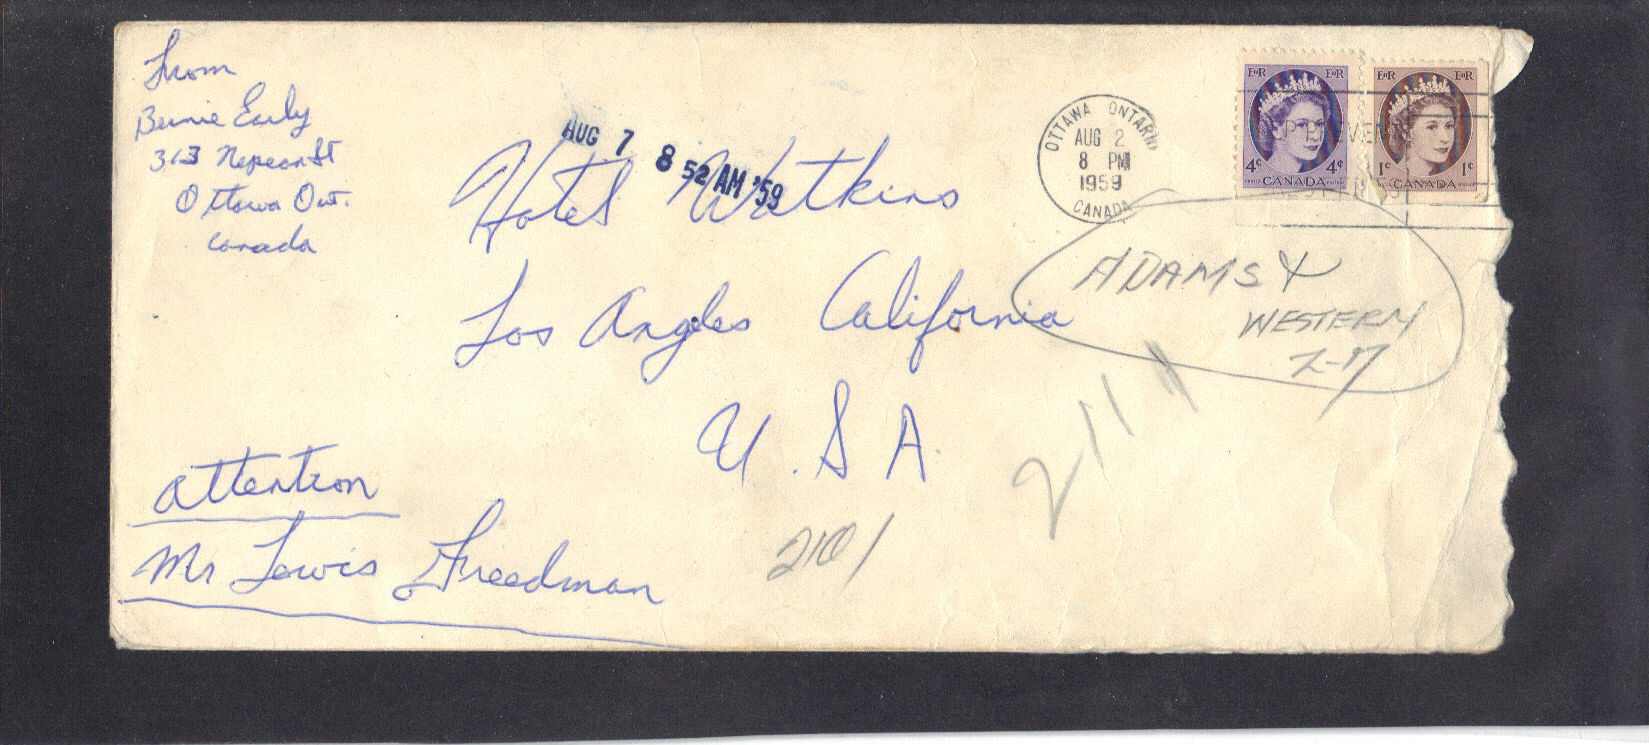 From
Bernie Early
313 Nepean St
Ottawa Ont.
Canada
AUG 7 8 52 AM '59
OTTAWA ONTARIO
AUG 2
8 PM
1959
CANADA
EIIR EIIR
4¢ 4¢
CANADA
EIIR EIIR
1¢ 1¢
CANADA
Hotel Watkins
Los Angeles California
U.S.A.
ADAMS &
WESTERN
Z-7
2111
2101
Attention
Mr Lewis Freedman